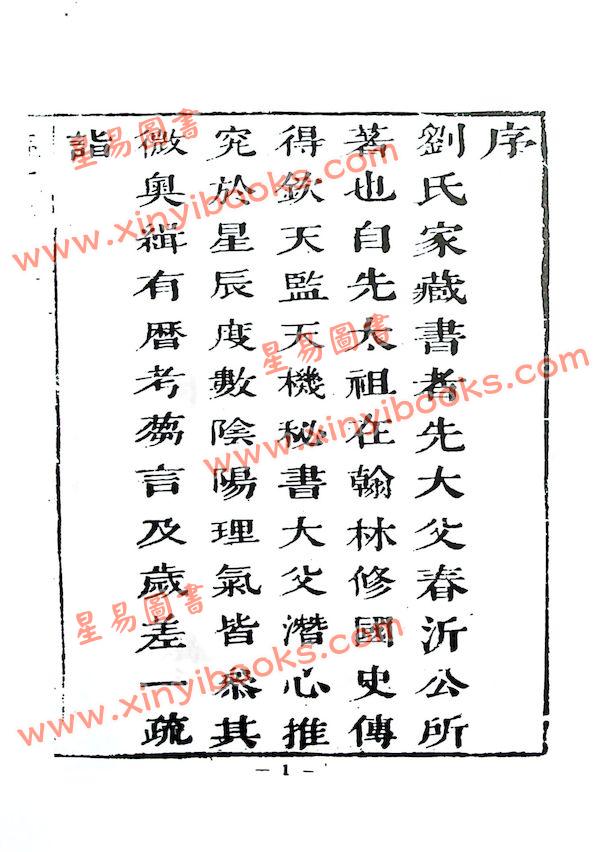 序
劉氏家藏書者先大父春沂公所
著也自先太祖在翰林修國史傳
得欽天監天機秘書大父潛心推
究於星辰度數陰陽理氣皆叅其
微奥緝有曆考蒭言及歲差一疏
詣
— 1 —
星易圖書
www.xinyibooks.com
星易圖書
www.xinyibooks.com
星易圖書
www.xinyibooks.com